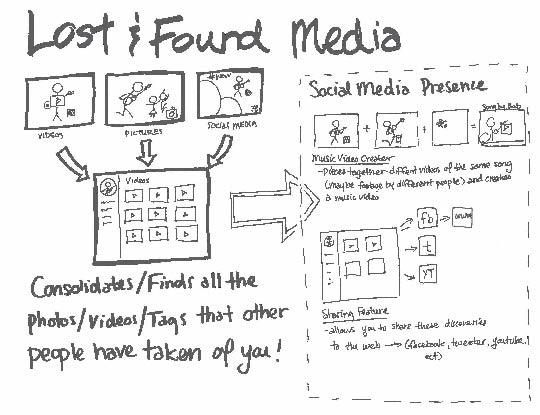 Lost & Found Media
VIDEOS
PICTURES
SOCIAL MEDIA
Videos
Consolidates/Finds all the
Photos/Videos/Tags that other
people have taken of you!
Social Media Presence
Song by Bob
Music Video Creator
-Pieces together different videos of the same song
(maybe footage by different people) and creates
a music video
fb
t
YT
Sharing Feature
-allows you to share these discoveries
to the web → (facebook, tweeter, youtube,
ect)